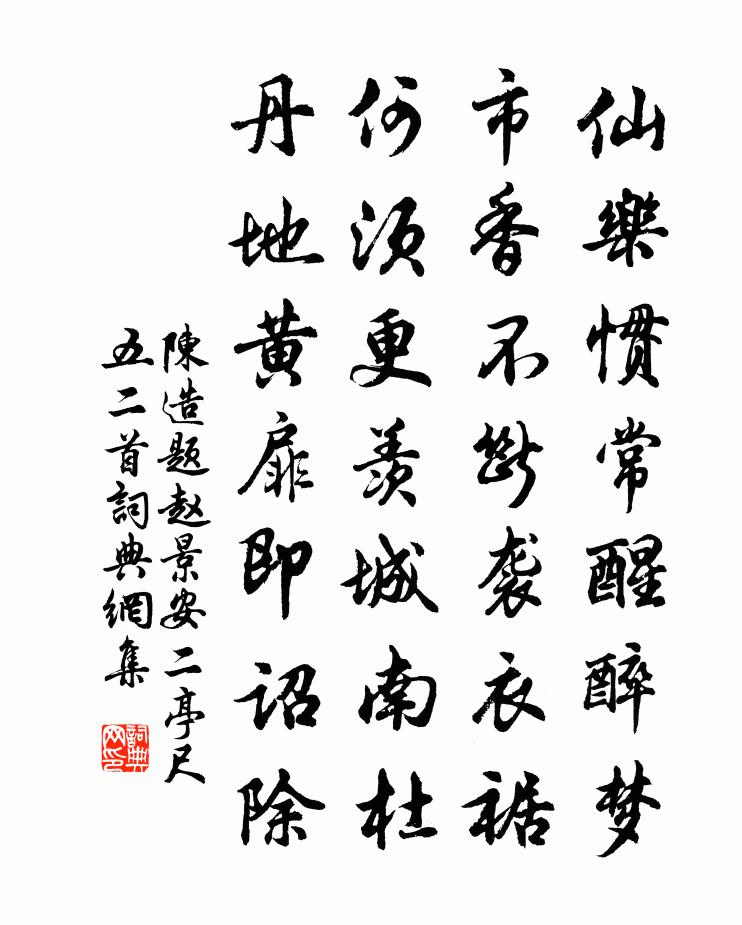 仙樂慣常醒醉梦
市香不斷袭衣裾
何須更羨城南杜
丹地黄扉即詔除
陳造题赵景安二亭尺
五二首詞典網集
詞典网印